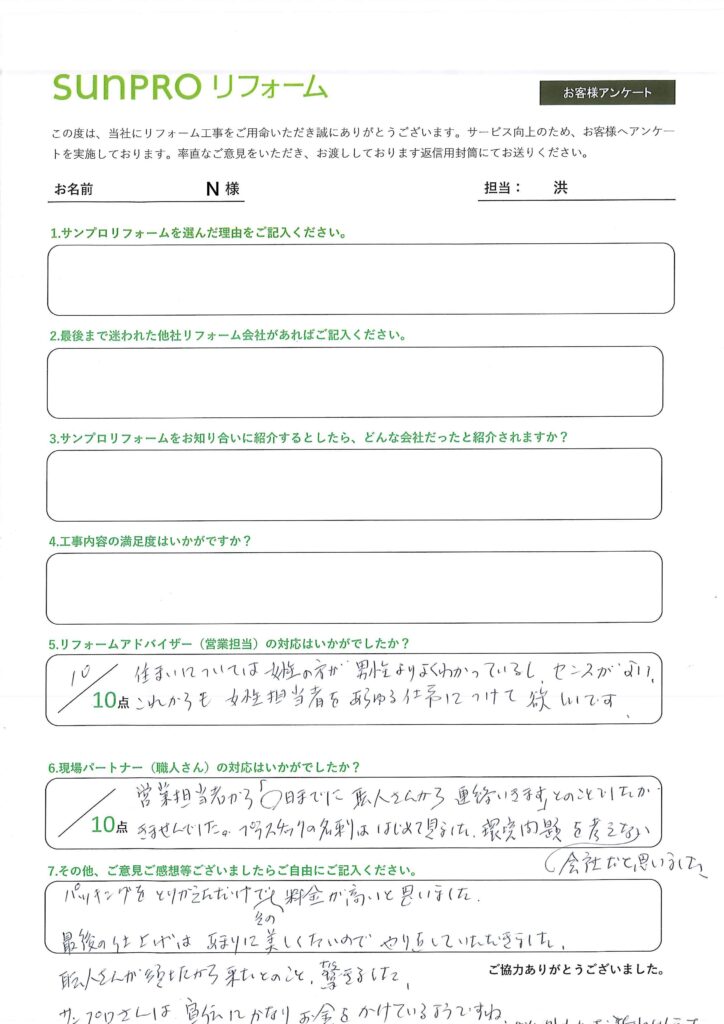 sunPRO リフォーム
お客様アンケート
この度は、当社にリフォーム工事をご用命いただき誠にありがとうございます。サービス向上のため、お客様へアンケー
トを実施しております。率直なご意見をいただき、お渡ししております返信用封筒にてお送りください。
お名前 N 様 担当： 洪
1.サンプロリフォームを選んだ理由をご記入ください。
2.最後まで迷われた他社リフォーム会社があればご記入ください。
3.サンプロリフォームをお知り合いに紹介するとしたら、どんな会社だったと紹介されますか？
4.工事内容の満足度はいかがですか？
5.リフォームアドバイザー（営業担当）の対応はいかがでしたか？
10／10点
住まいについては女性の方が男性よりよくわかっているし、センスがよい、
これからも女性担当者をあらゆる仕事につけて欲しいです、
6.現場パートナー（職人さん）の対応はいかがでしたか？
／10点
営業担当者から「○日までに職人さんから連絡いきます」とのことでしたが
きませんでした。プラスチックの名刺ははじめて見ました、環境問題を考えない
会社だと思いました
7.その他、ご意見ご感想等ございましたらご自由にご記入ください。
パッキングをとりかえただけでも料金が高いと思いました、
その
最後の仕上げはあまりに美しくないのでやり直していただきました、
ご協力ありがとうございました。
職人さんが須坂から来たとのこと、驚きました、
サンプロさんは宣伝にかなりお金をかけているようですね、